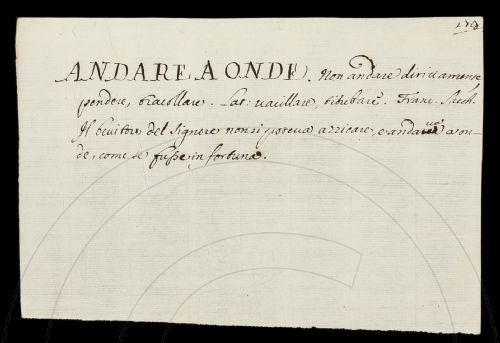 ANDARE A ONDE. Non andare dirittamente
pendere, tracollare. Lat: vacillare, titubare. Franc. Sacch.
Il bevitore del Signore non si poteva azzicare, e andava a on-
de, come se fusse in fortuna.